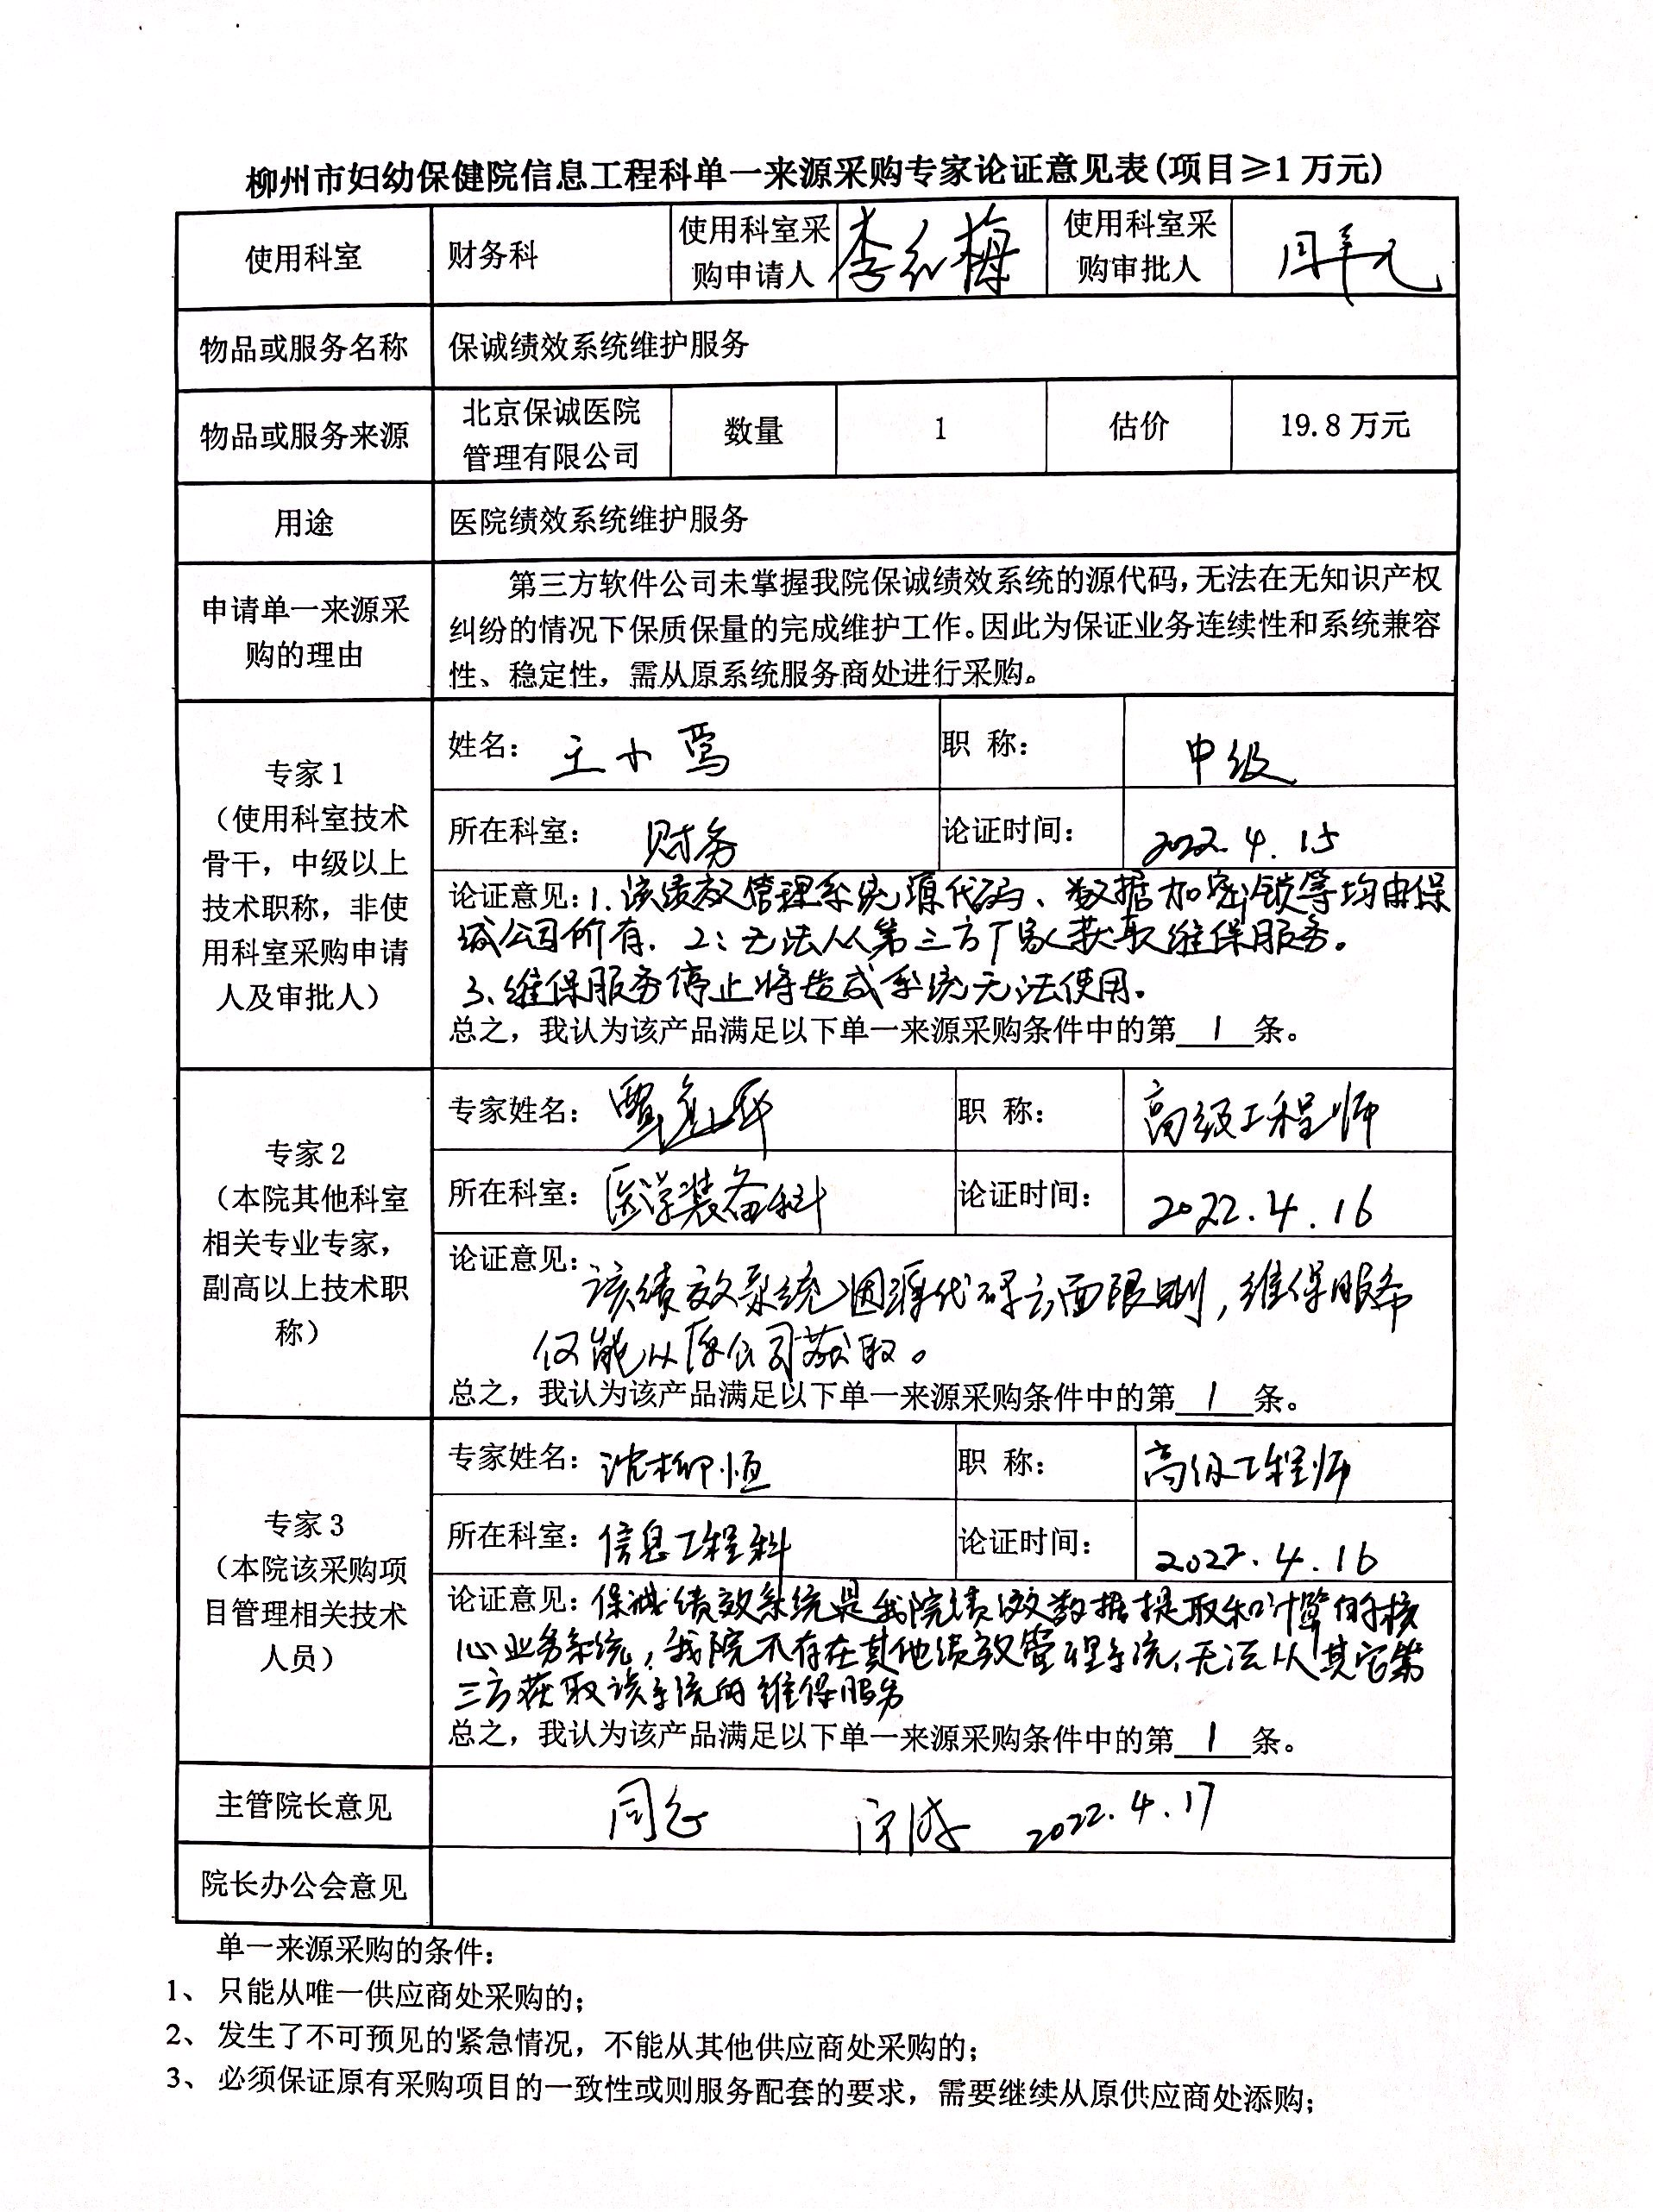 柳州市妇幼保健院信息工程科单一来源采购专家论证意见表(项目≥1万元)
使用科室
财务科
使用科室采
购申请人
李红梅
使用科室采
购审批人
物品或服务名称
保诚绩效系统维护服务
物品或服务来源
北京保诚医院
管理有限公司
数量
1
估价
19.8万元
用途
医院绩效系统维护服务
申请单一来源采
购的理由
第三方软件公司未掌握我院保诚绩效系统的源代码，无法在无知识产权
纠纷的情况下保质保量的完成维护工作。因此为保证业务连续性和系统兼容
性、稳定性，需从原系统服务商处进行采购。
专家1
（使用科室技术
骨干，中级以上
技术职称，非使
用科室采购申请
人及审批人）
姓名：
王小莺
职 称：
中级
所在科室：
财务
论证时间：
2022.4.15
论证意见：1.该绩效管理系统源代码、数据加密锁等均由保
诚公司所有. 2：无法从第三方厂家获取维保服务。
3、维保服务停止将造成系统无法使用。
总之，我认为该产品满足以下单一来源采购条件中的第1条。
专家2
（本院其他科室
相关专业专家，
副高以上技术职
称）
专家姓名：
职 称：
高级工程师
所在科室：
医学装备科
论证时间：
2022.4.16
论证意见：
该绩效系统因源代码方面限制，维保服务
仅能从原公司获取。
总之，我认为该产品满足以下单一来源采购条件中的第1条。
专家3
（本院该采购项
目管理相关技术
人员）
专家姓名：
沈柳恒
职 称：
高级工程师
所在科室：
信息工程科
论证时间：
2022.4.16
论证意见：保诚绩效系统是我院绩效数据提取和计算的核
心业务系统，我院不存在其他绩效管理系统，无法从其它第
三方获取该系统的维保服务
总之，我认为该产品满足以下单一来源采购条件中的第1条。
主管院长意见
同意
2022.4.17
院长办公会意见
单一来源采购的条件：
1、只能从唯一供应商处采购的；
2、发生了不可预见的紧急情况，不能从其他供应商处采购的；
3、必须保证原有采购项目的一致性或则服务配套的要求，需要继续从原供应商处添购；